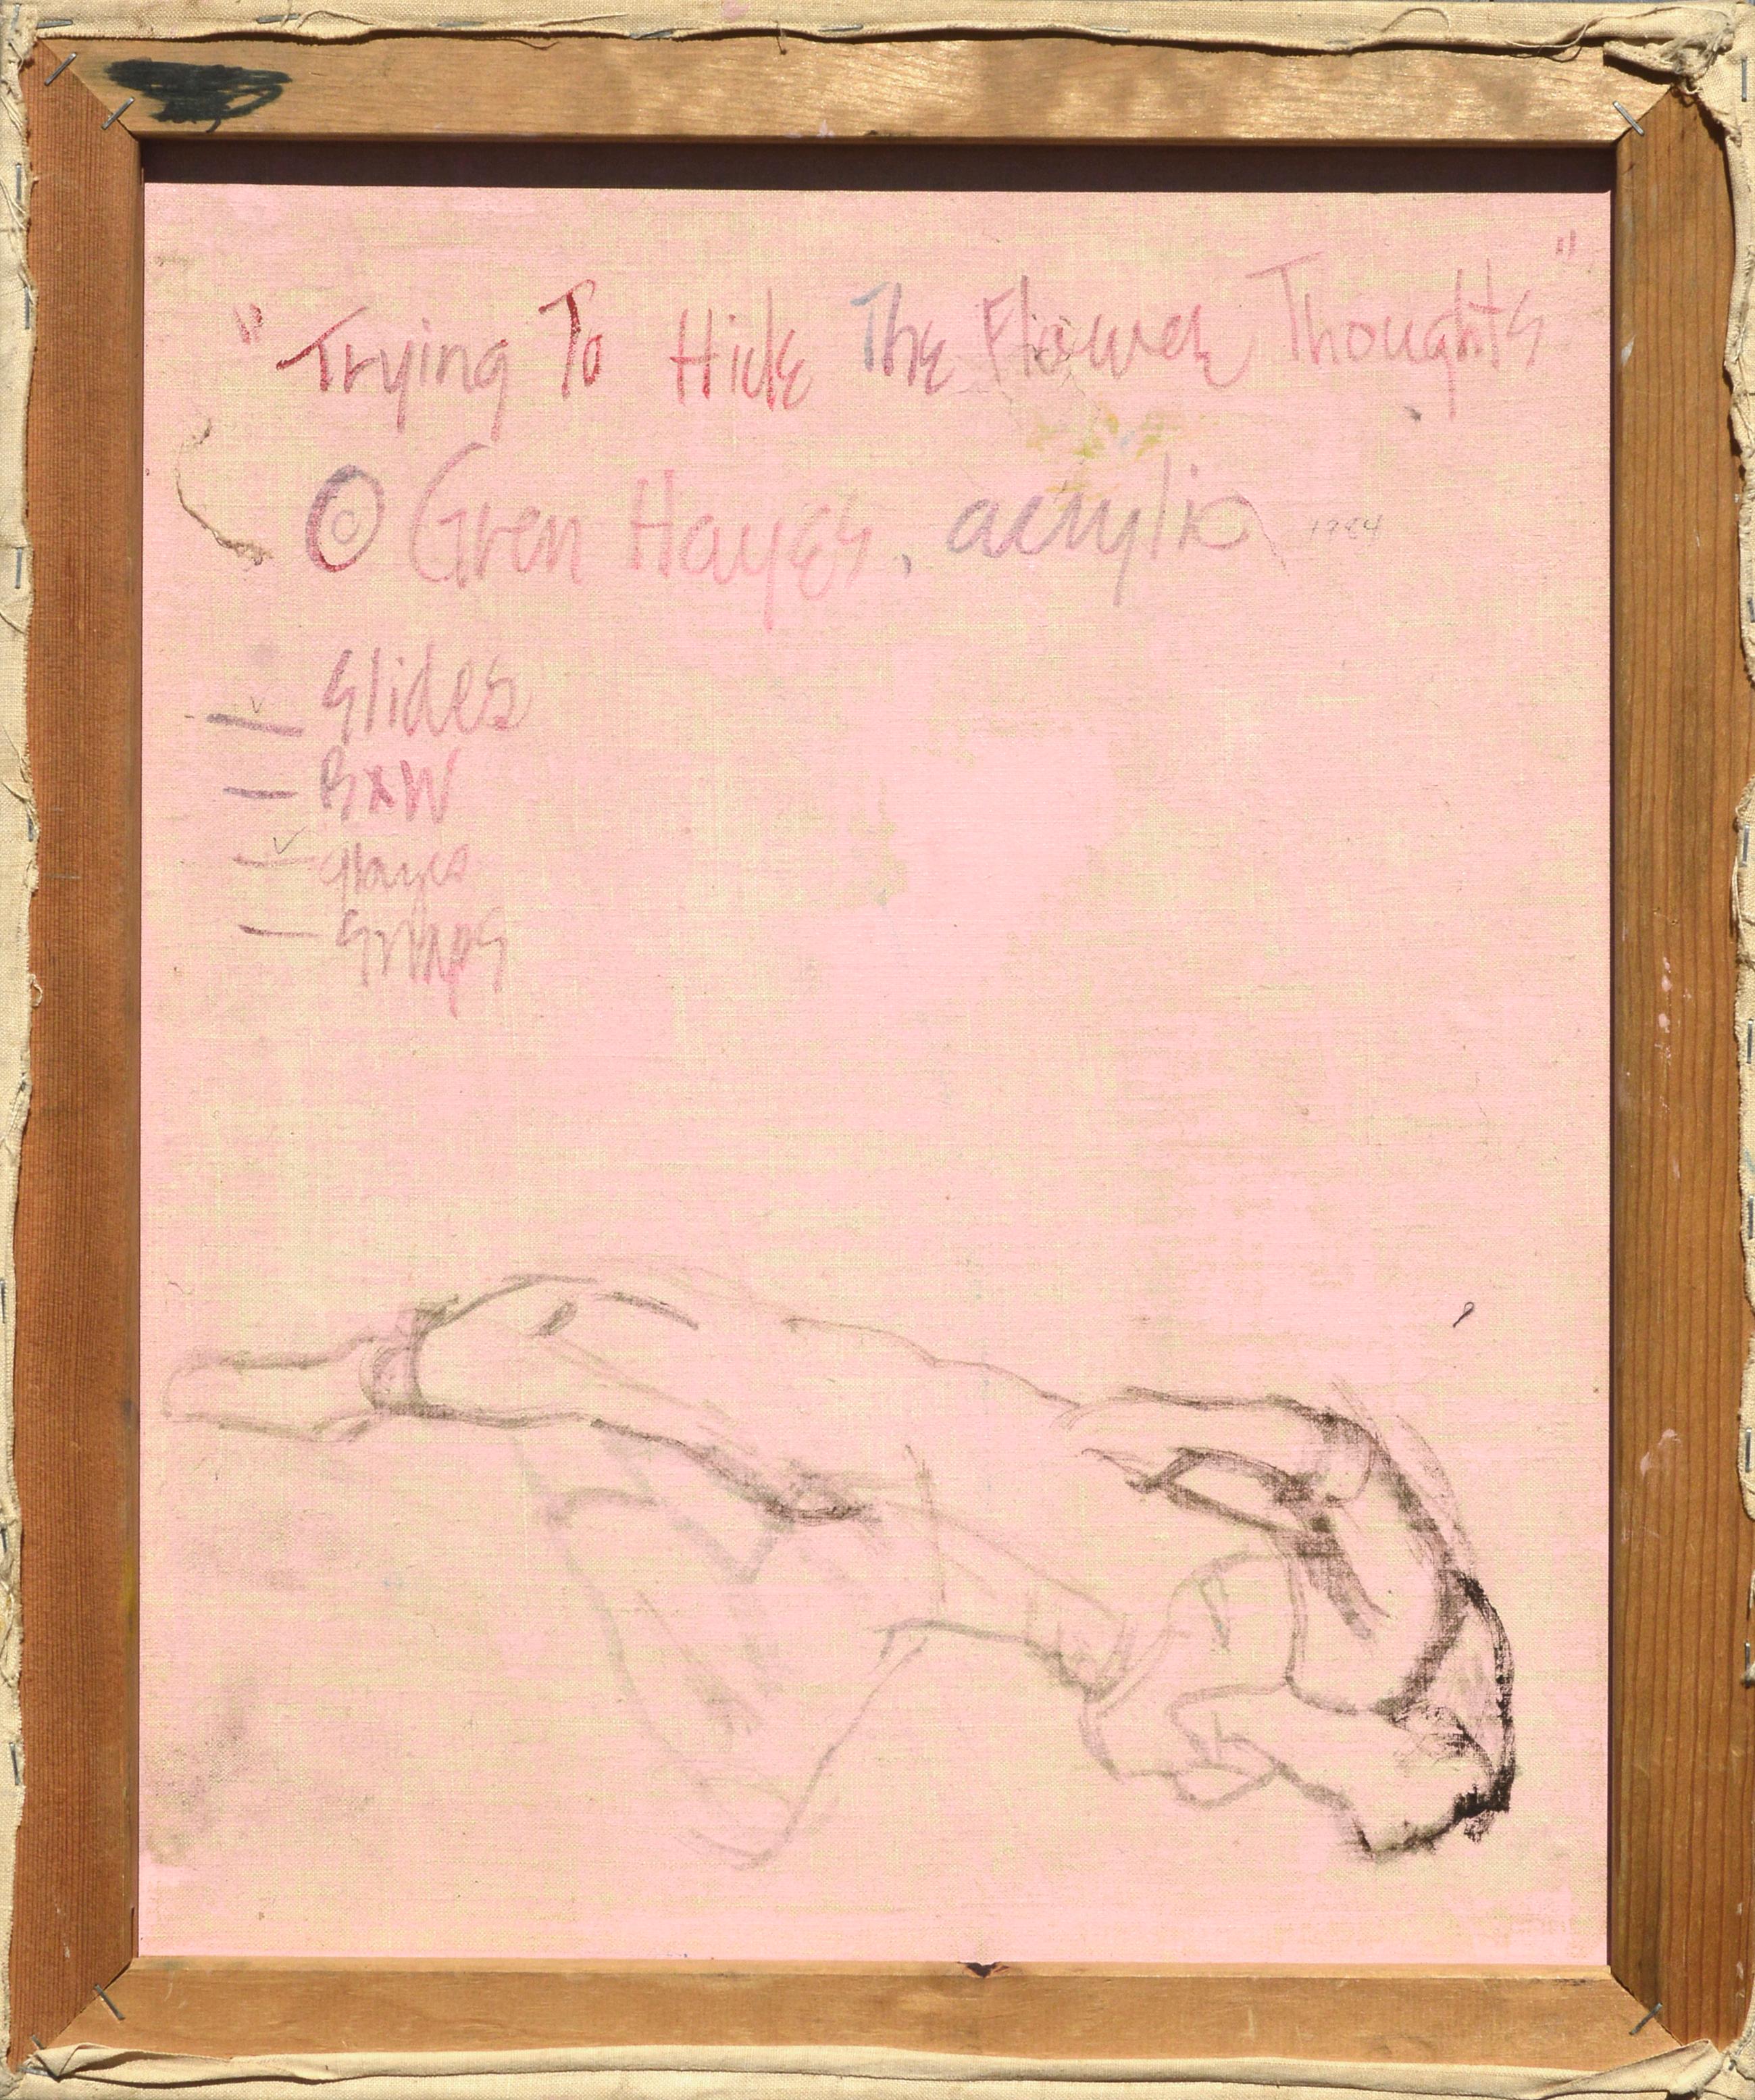 "Trying To Hide The Flower Thoughts"
© Gren Hayes, acrylic 1984
— Slides
— B&W
— Hayes
— Snaps